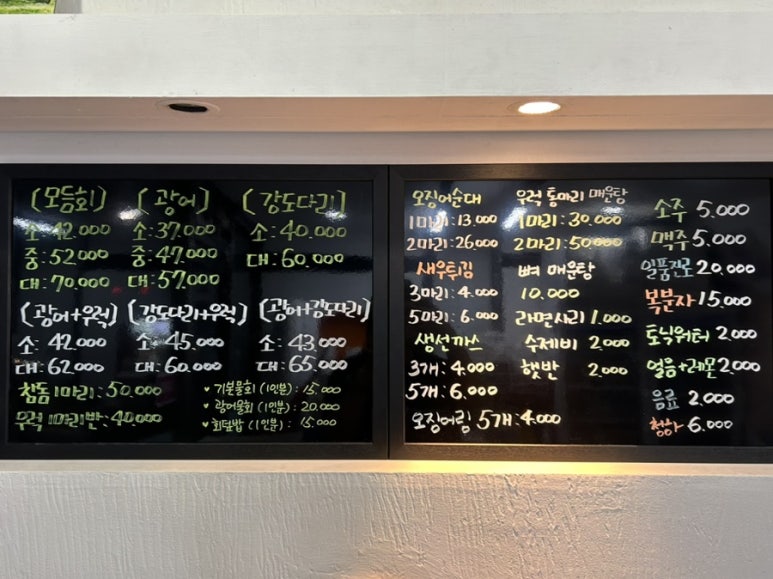 (모듬회)
소: 42.000
중: 52.000
대: 70.000
(광어)
소: 37.000
중: 47.000
대: 57.000
(강도다리)
소: 40.000
대: 60.000
(광어+우럭)
소: 42.000
대: 62.000
(강도다리+우럭)
소: 45.000
대: 60.000
(광어+강도다리)
소: 43.000
대: 65.000
참돔 1마리: 50.000
우럭 1마리반: 40.000
♥ 기본물회 (1인분): 15.000
♥ 광어물회 (1인분): 20.000
♥ 회덮밥 (1인분): 15.000
오징어순대
1마리: 13.000
2마리: 26.000
새우튀김
3마리: 4.000
5마리: 6.000
생선까스
3개: 4.000
5개: 6.000
오징어링 5개: 4.000
우럭 통마리 매운탕
1마리: 30.000
2마리: 50.000
뼈 매운탕
10.000
라면사리 1.000
수제비 2.000
햇반 2.000
소주 5.000
맥주 5.000
일품진로 20.000
복분자 15.000
토닉워터 2.000
얼음+레몬 2.000
음료 2.000
청하 6.000